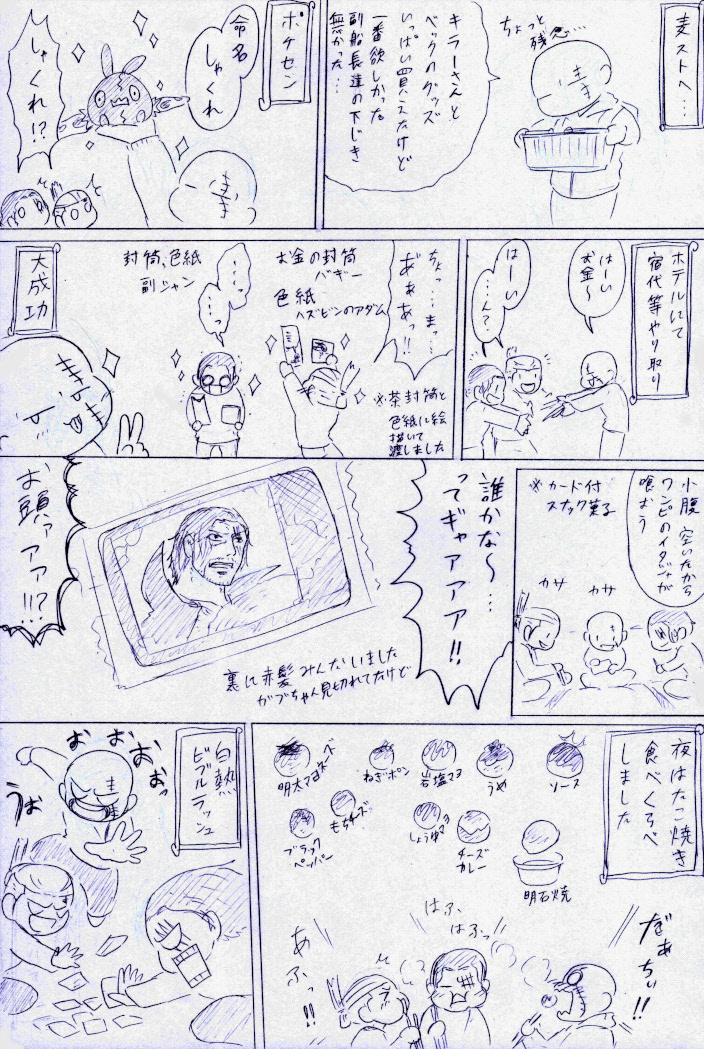 麦ストへ…
ちょっと
残念…
キラーさんと
ベックのグッズ
いっぱい買えたけど
一番欲しかった
副船長達の下じき
無かった…
ポケセン
命名
しゃくれ
しゃくれ!?
ホテルにて
宿代等やり取り
はーい
お金〜
はーい
…ん?
ちょっ…まっ…
あ゛ぁあっ!!
※茶封筒と
色紙に絵
描いて
渡しました
お金の封筒
バギー
色紙
ヘズビンのアダム
…っ
…っ
封筒、色紙
副ジャン
大成功
小腹空いたから
ワンピのイタジャガ
喰おう
※カード付
スナック菓子
カサ
カサ
誰かな〜…
ってギャアアア!!
お頭ァァァ!!?
裏に赤髪みんないました
ガブちゃん見切れてたけど
夜はたこ焼き
食べくらべ
しました
ソース
うめ
岩塩マヨ
ねぎポン
明太マヨ
明石焼
チーズ
カレー
しょうゆ
もちチーズ
ブラック
ペッパー
だぁちぃ!!
はふ、
はふっ!!
あふっ!!
白熱
ビブルラッシュ
おおおおっ
うお